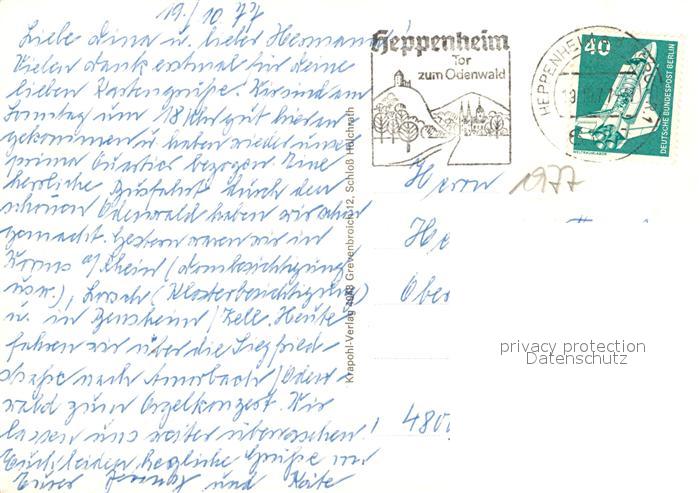 19./10. 77
Liebe Dina u. lieber Hermann!
Vielen Dank erstmal für deine
lieben Kartengrüße. Wir sind am
Sonntag um 18 Uhr gut hier an
gekommen u. haben wieder unser
prima Quartier bezogen. Eine
herrliche Busfahrt durch den
schönen Odenwald haben wir schon
gemacht. Gestern waren wir in
Worms a/Rhein (Dombesichtigung
usw.), Lorsch (Klosterbesichtigung)
u. in Bensheim/Zell. Heute
fahren wir über die Siegfried-
straße nach Amorbach/Oden
wald zum Orgelkonzert. Wir
lassen uns weiter überraschen!
Euch beiden herzliche Grüße von
Eurer und Käte
Krapohl-Verlag 4048 Grevenbroich 12, Schloß Hülchrath
Heppenheim
Tor
zum Odenwald
HEPPENHEIM
40
DEUTSCHE BUNDESPOST BERLIN
Herrn
1977
He
Ober
480
privacy protection
Datenschutz